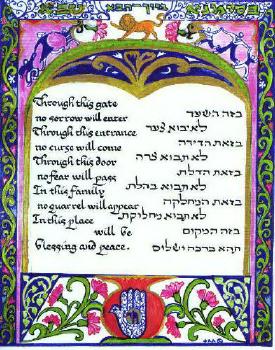 Through this gate
no sorrow will enter
Through this entrance
no curse will come
Through this door
no fear will pass
In this family
no quarrel will appear
In this place
will be
blessing and peace.
בזה השער
לא יבוא צער
בזאת הדירה
לא תבוא צרה
בזאת הדלת
לא תבוא בהלת
בזאת המחלקה
לא תבוא מחלוקת
בזה המקום
תהא ברכה ושלום